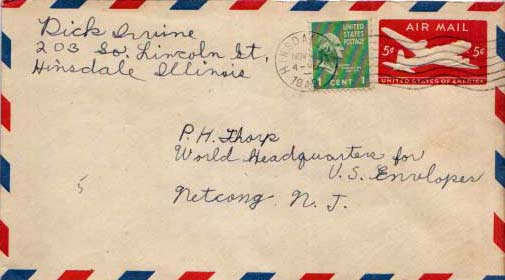 Dick Irvine
203 So. Lincoln St,
Hinsdale Illinois
UNITED
STATES
POSTAGE
CENT 1
AIR MAIL
5¢ 5¢
UNITED STATES OF AMERICA
HINSDA
NOV
4-
P.H. Thorp
World Headquarters for
U.S. Envelopes
Netcong N. J.
5